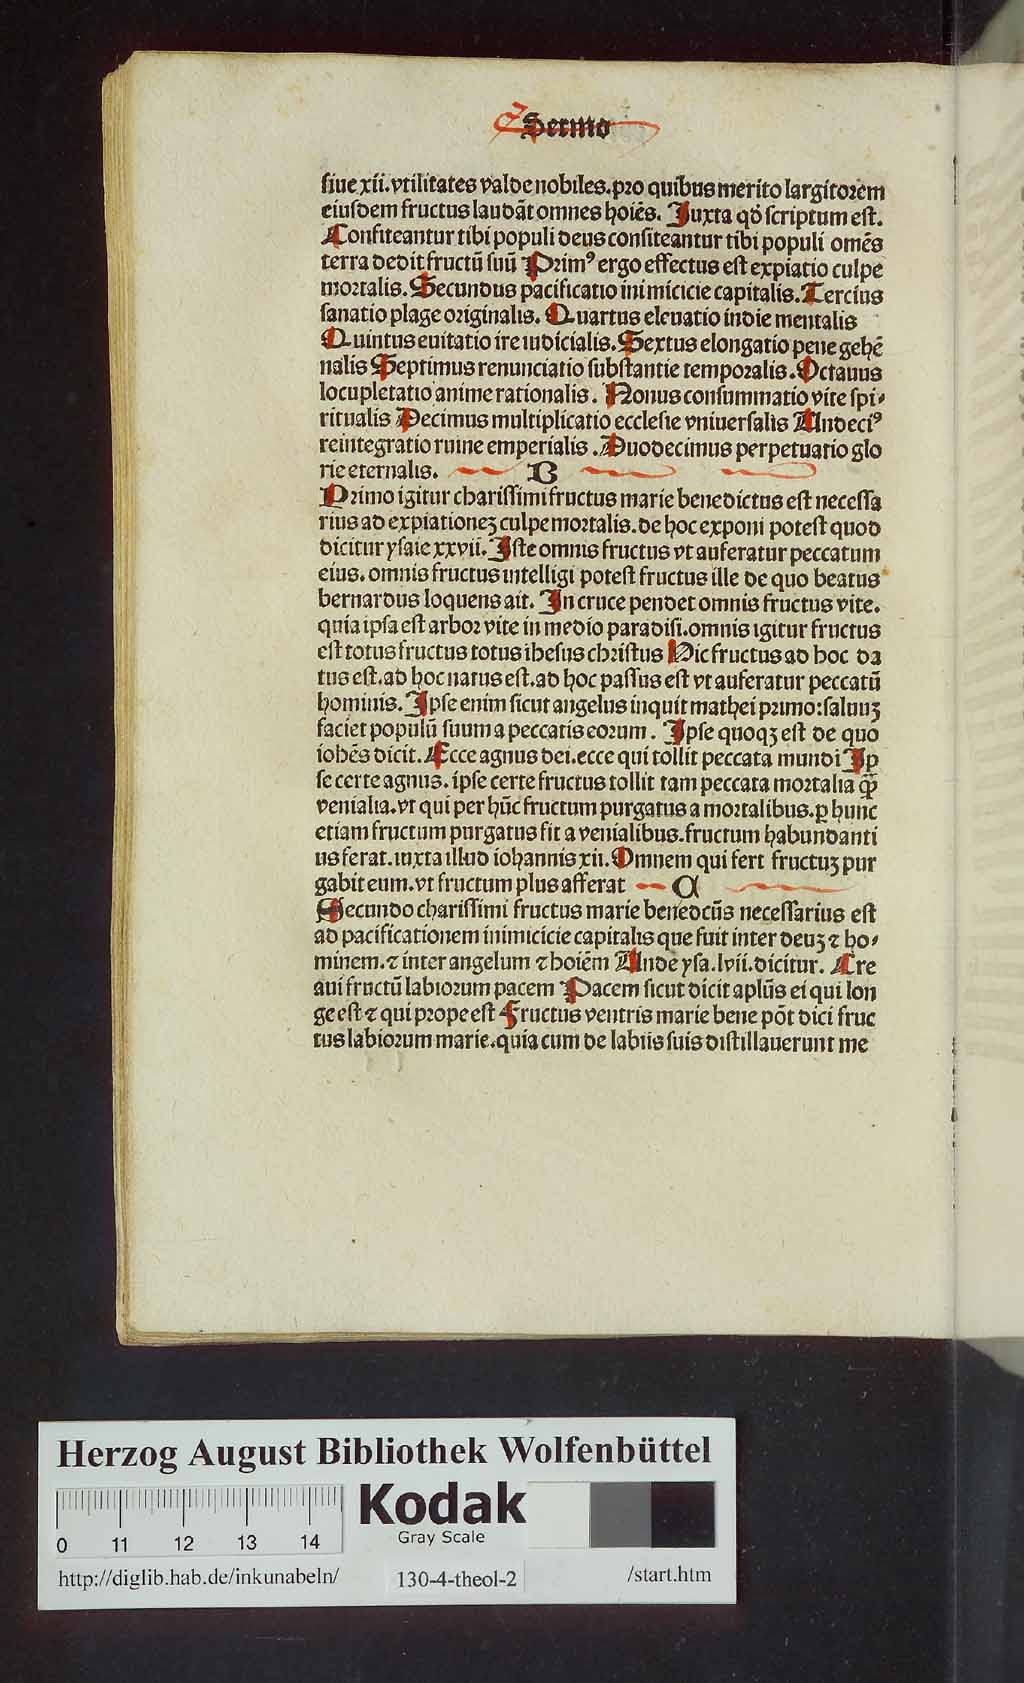 Sermo
siue xii. vtilitates valde nobiles. pro quibus merito largitorem
eiusdem fructus laudāt omnes hoiēs. Juxta qđ scriptum est.
Confiteantur tibi populi deus confiteantur tibi populi omēs
terra dedit fructū suū Primꝰ ergo effectus est expiatio culpe
mortalis. Secundus pacificatio inimicicie capitalis. Tercius
sanatio plage originalis. Quartus eleuatio indie mentalis
Quintus euitatio ire iudicialis. Sextus elongatio pene gehē
nalis Septimus renunciatio substantie temporalis. Octauus
locupletatio anime rationalis. Nonus consummatio vite spi⸗
ritualis Decimus multiplicatio ecclesie vniuersalis Undeciꝰ
reintegratio ruine emperialis. Duodecimus perpetuatio glo
rie eternalis. B
Primo igitur charissimi fructus marie benedictus est necessa
rius ad expiationeꝫ culpe mortalis. de hoc exponi potest quod
dicitur ysaie xxvii. Iste omnis fructus vt auferatur peccatum
eius. omnis fructus intelligi potest fructus ille de quo beatus
bernardus loquens ait. In cruce pendet omnis fructus vite.
quia ipsa est arbor vite in medio paradisi. omnis igitur fructus
est totus fructus totus ihesus christus Hic fructus ad hoc da
tus est. ad hoc natus est. ad hoc passus est vt auferatur peccatū
hominis. Ipse enim sicut angelus inquit mathei primo: saluuꝫ
faciet populū suum a peccatis eorum. Ipse quoqꝫ est de quo
iohēs dicit. Ecce agnus dei. ecce qui tollit peccata mundi Ip
se certe agnus. ipse certe fructus tollit tam peccata mortalia qꝫ̄
venialia. vt qui per hūc fructum purgatus a mortalibus. ꝑ hunc
etiam fructum purgatus fit a venialibus. fructum habundanti
us ferat. iuxta illud iohannis xii. Omnem qui fert fructuꝫ pur
gabit eum. vt fructum plus afferat C
Secundo charissimi fructus marie benedcūs necessarius est
ad pacificationem inimicicie capitalis que fuit inter deuꝫ ⁊ ho⸗
minem. ⁊ inter angelum ⁊ hoiēm Unde ysa. lvii. dicitur. Cre
aui fructū labiorum pacem Pacem sicut dicit aplūs ei qui lon
ge est ⁊ qui prope est Fructus ventris marie bene pōt dici fruc
tus labiorum marie. quia cum de labiis suis distillauerunt me
Herzog August Bibliothek Wolfenbüttel
Kodak
Gray Scale
0 11 12 13 14
http://diglib.hab.de/inkunabeln/ 130-4-theol-2 /start.htm